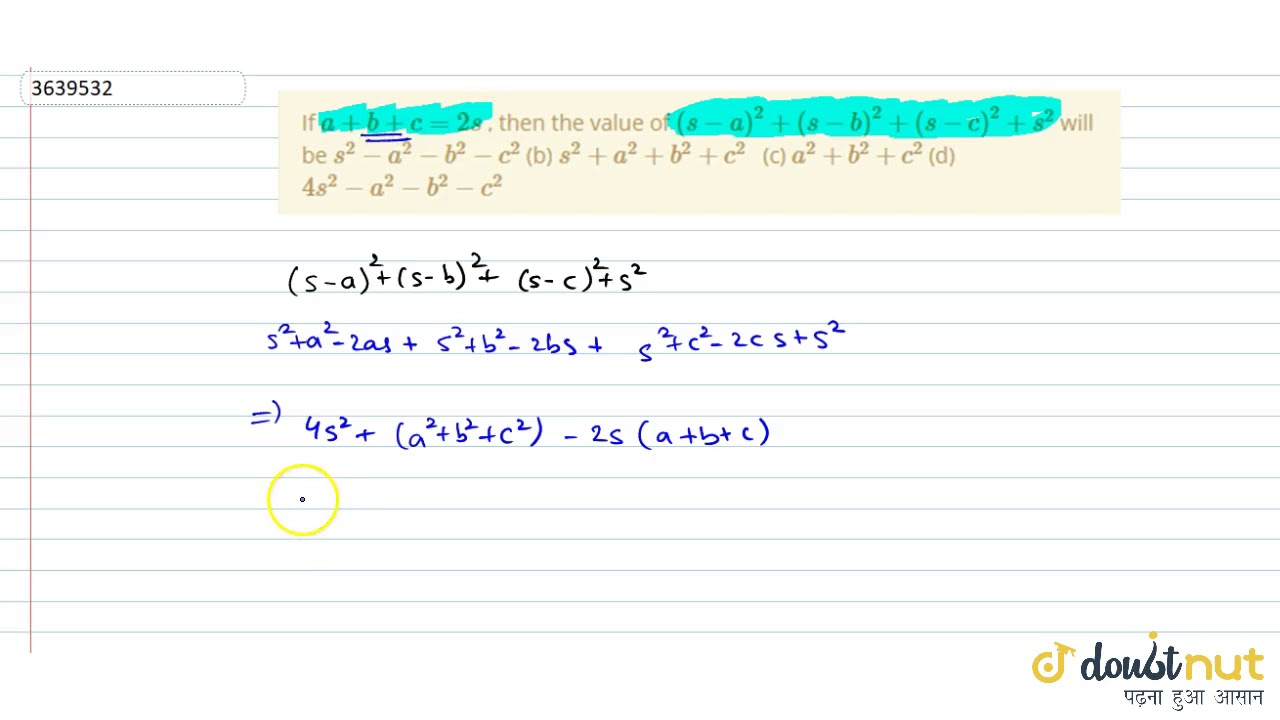 3639532
If a + b + c = 2s , then the value of (s − a)² + (s − b)² + (s − c)² + s² will
be s² − a² − b² − c² (b) s² + a² + b² + c² (c) a² + b² + c² (d)
4s² − a² − b² − c²
(s-a)²+(s-b)²+ (s-c)²+s²
s²+a²-2as + s²+b²-2bs + s²+c²-2cs+s²
=) 4s²+ (a²+b²+c²) - 2s (a+b+c)
doubtnut
पढ़ना हुआ आसान